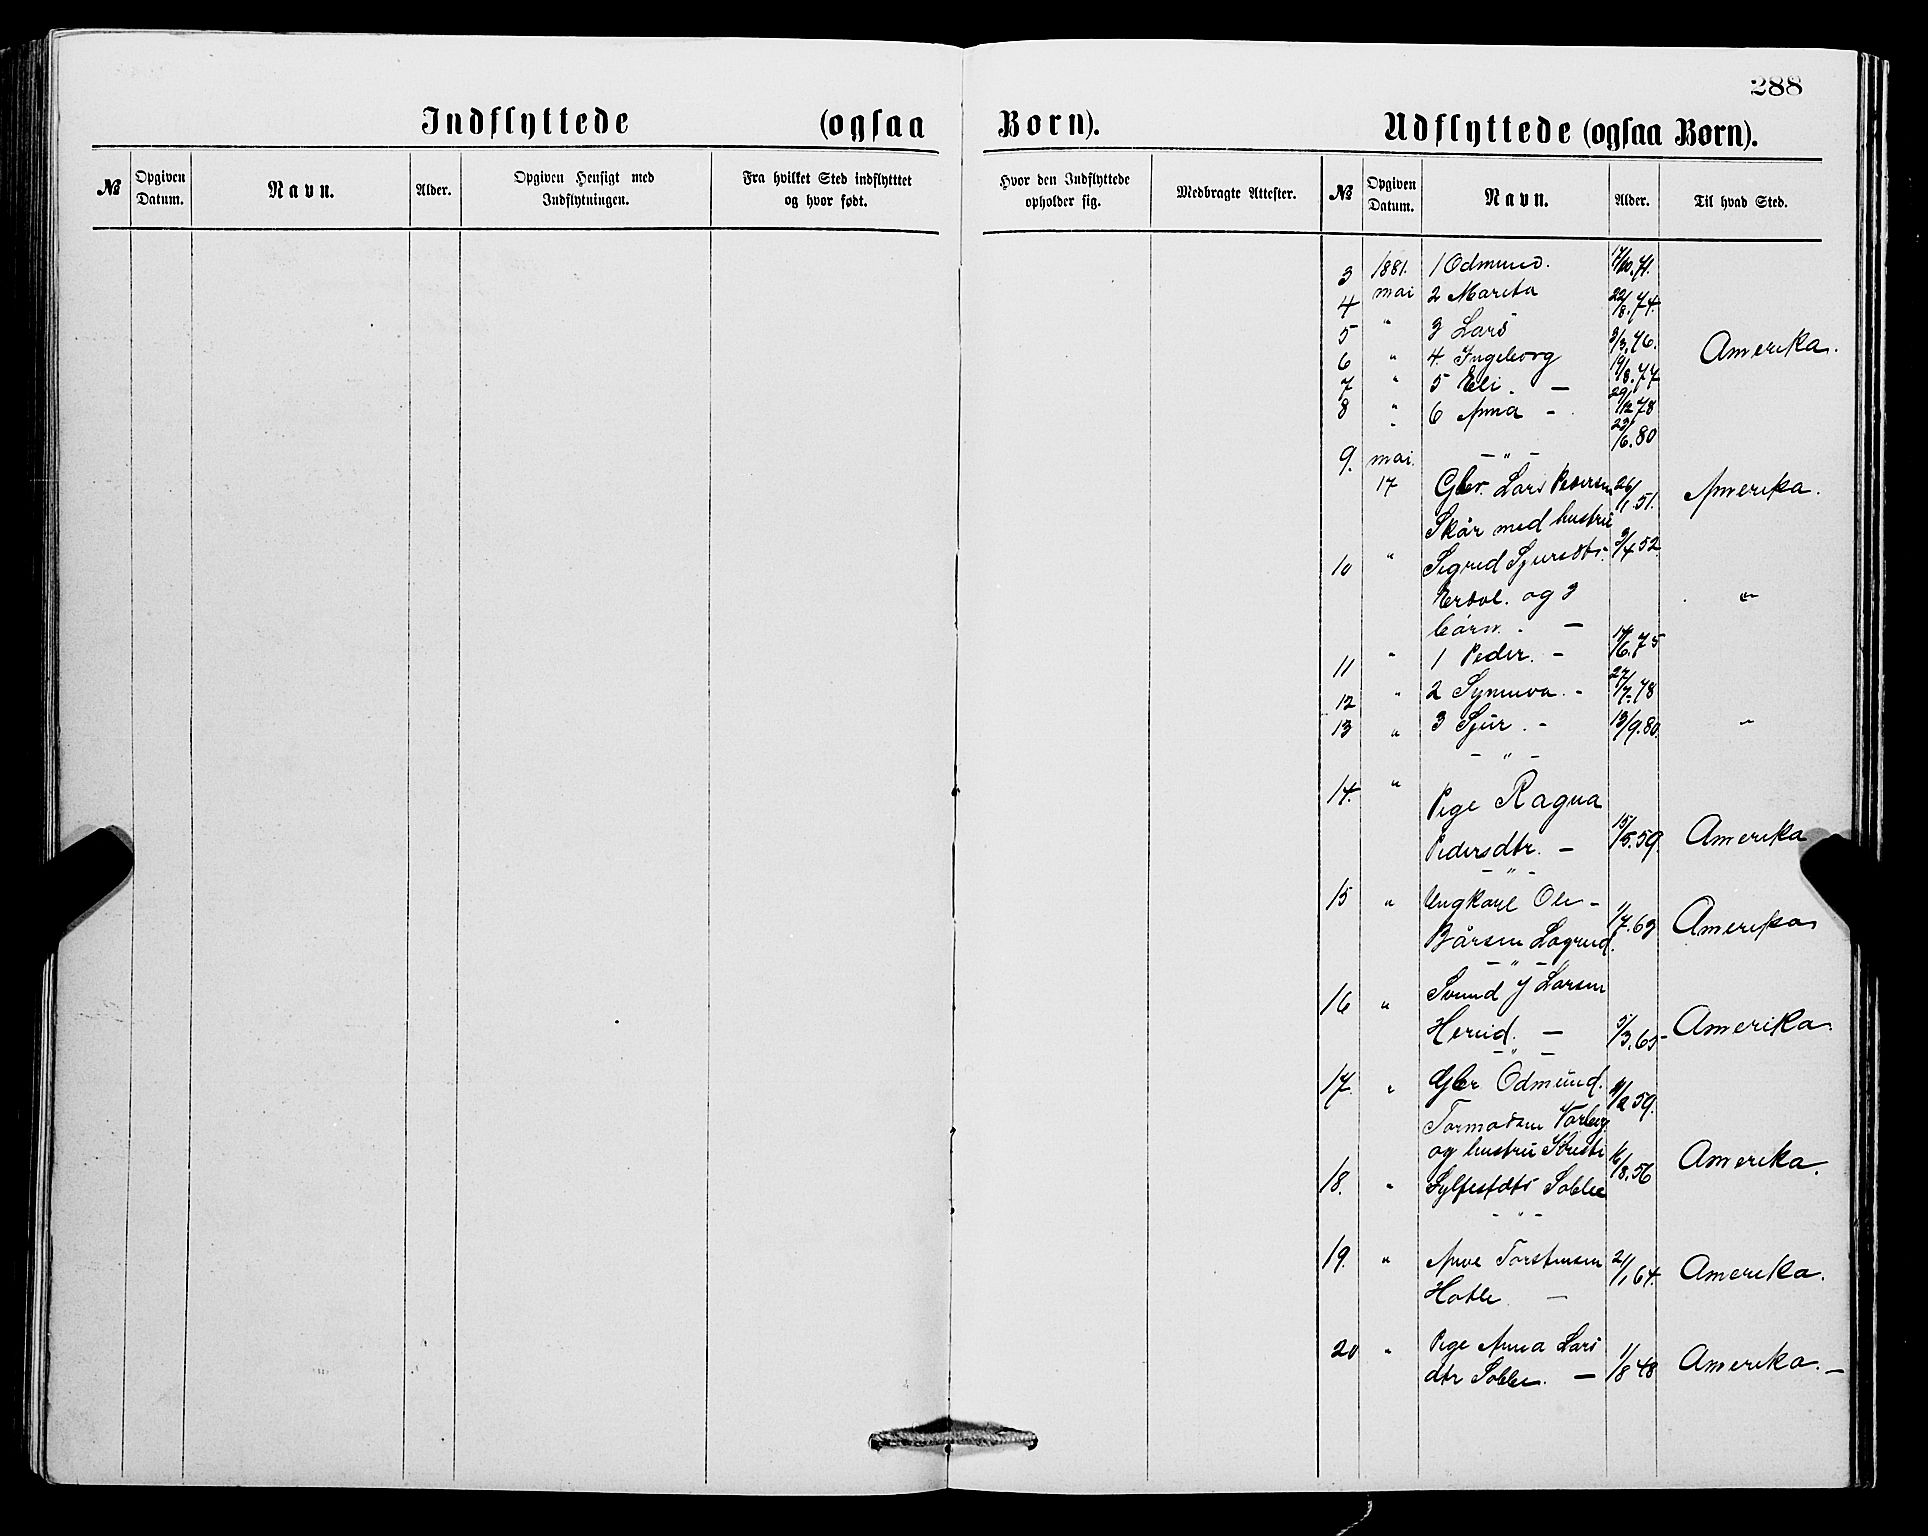 288
Indflyttede (ogsaa Børn).
Udflyttede (ogsaa Børn).
№ Opgiven Datum. Navn. Alder. Opgiven Hensigt med Indflytningen. Fra hvilket Sted indflytttet og hvor født. Hvor den Indflyttede opholder sig. Medbragte Attester. № Opgiven Datum. Navn. Alder. Til hvad Sted.
3 1881. 1 Odmund. 17/10.71.
4 mai 2 Marita 22/8.74.
5 " 3 Lars 3/3.76. Amerika.
6 " 4. Ingeborg 19/8.77
7 " 5 Eli. — 29/12 78
8 " 6 Anna - 23/6.80
"
— " —
9. mai 17 Gbr. Lars Pedersen 26/1.51. Amerika.
Skår med hustru
10 " Sigrid Sjursdtr. 3/4 52.
og 3 "
børn. . —
11 " 1 Peder. — 17/6.75
12 " 2 Synneva. - 27/7.78
13 " 3 Sjur. - 13/9.80. "
— " —
14. " Pige Ragna
Pedersdtr. — 15/5.59. Amerika
— " —
15 " Ungkarl Ole -
Bårsen 1/7.63 Amerika
— " —
16 " Svend J Larsen
Herud. — 5/3.65 Amerika.
— " —
17. " Gbr Odmund. 59.
Tormodsen
og hustru Kristi Amerika.
18. " 16/8.56
- " -
19. " Arne Torstensen 21/1 64. Amerika.
Hatle —
20 " Pige Anna Lars
dtr — 1/8 48 Amerika. —